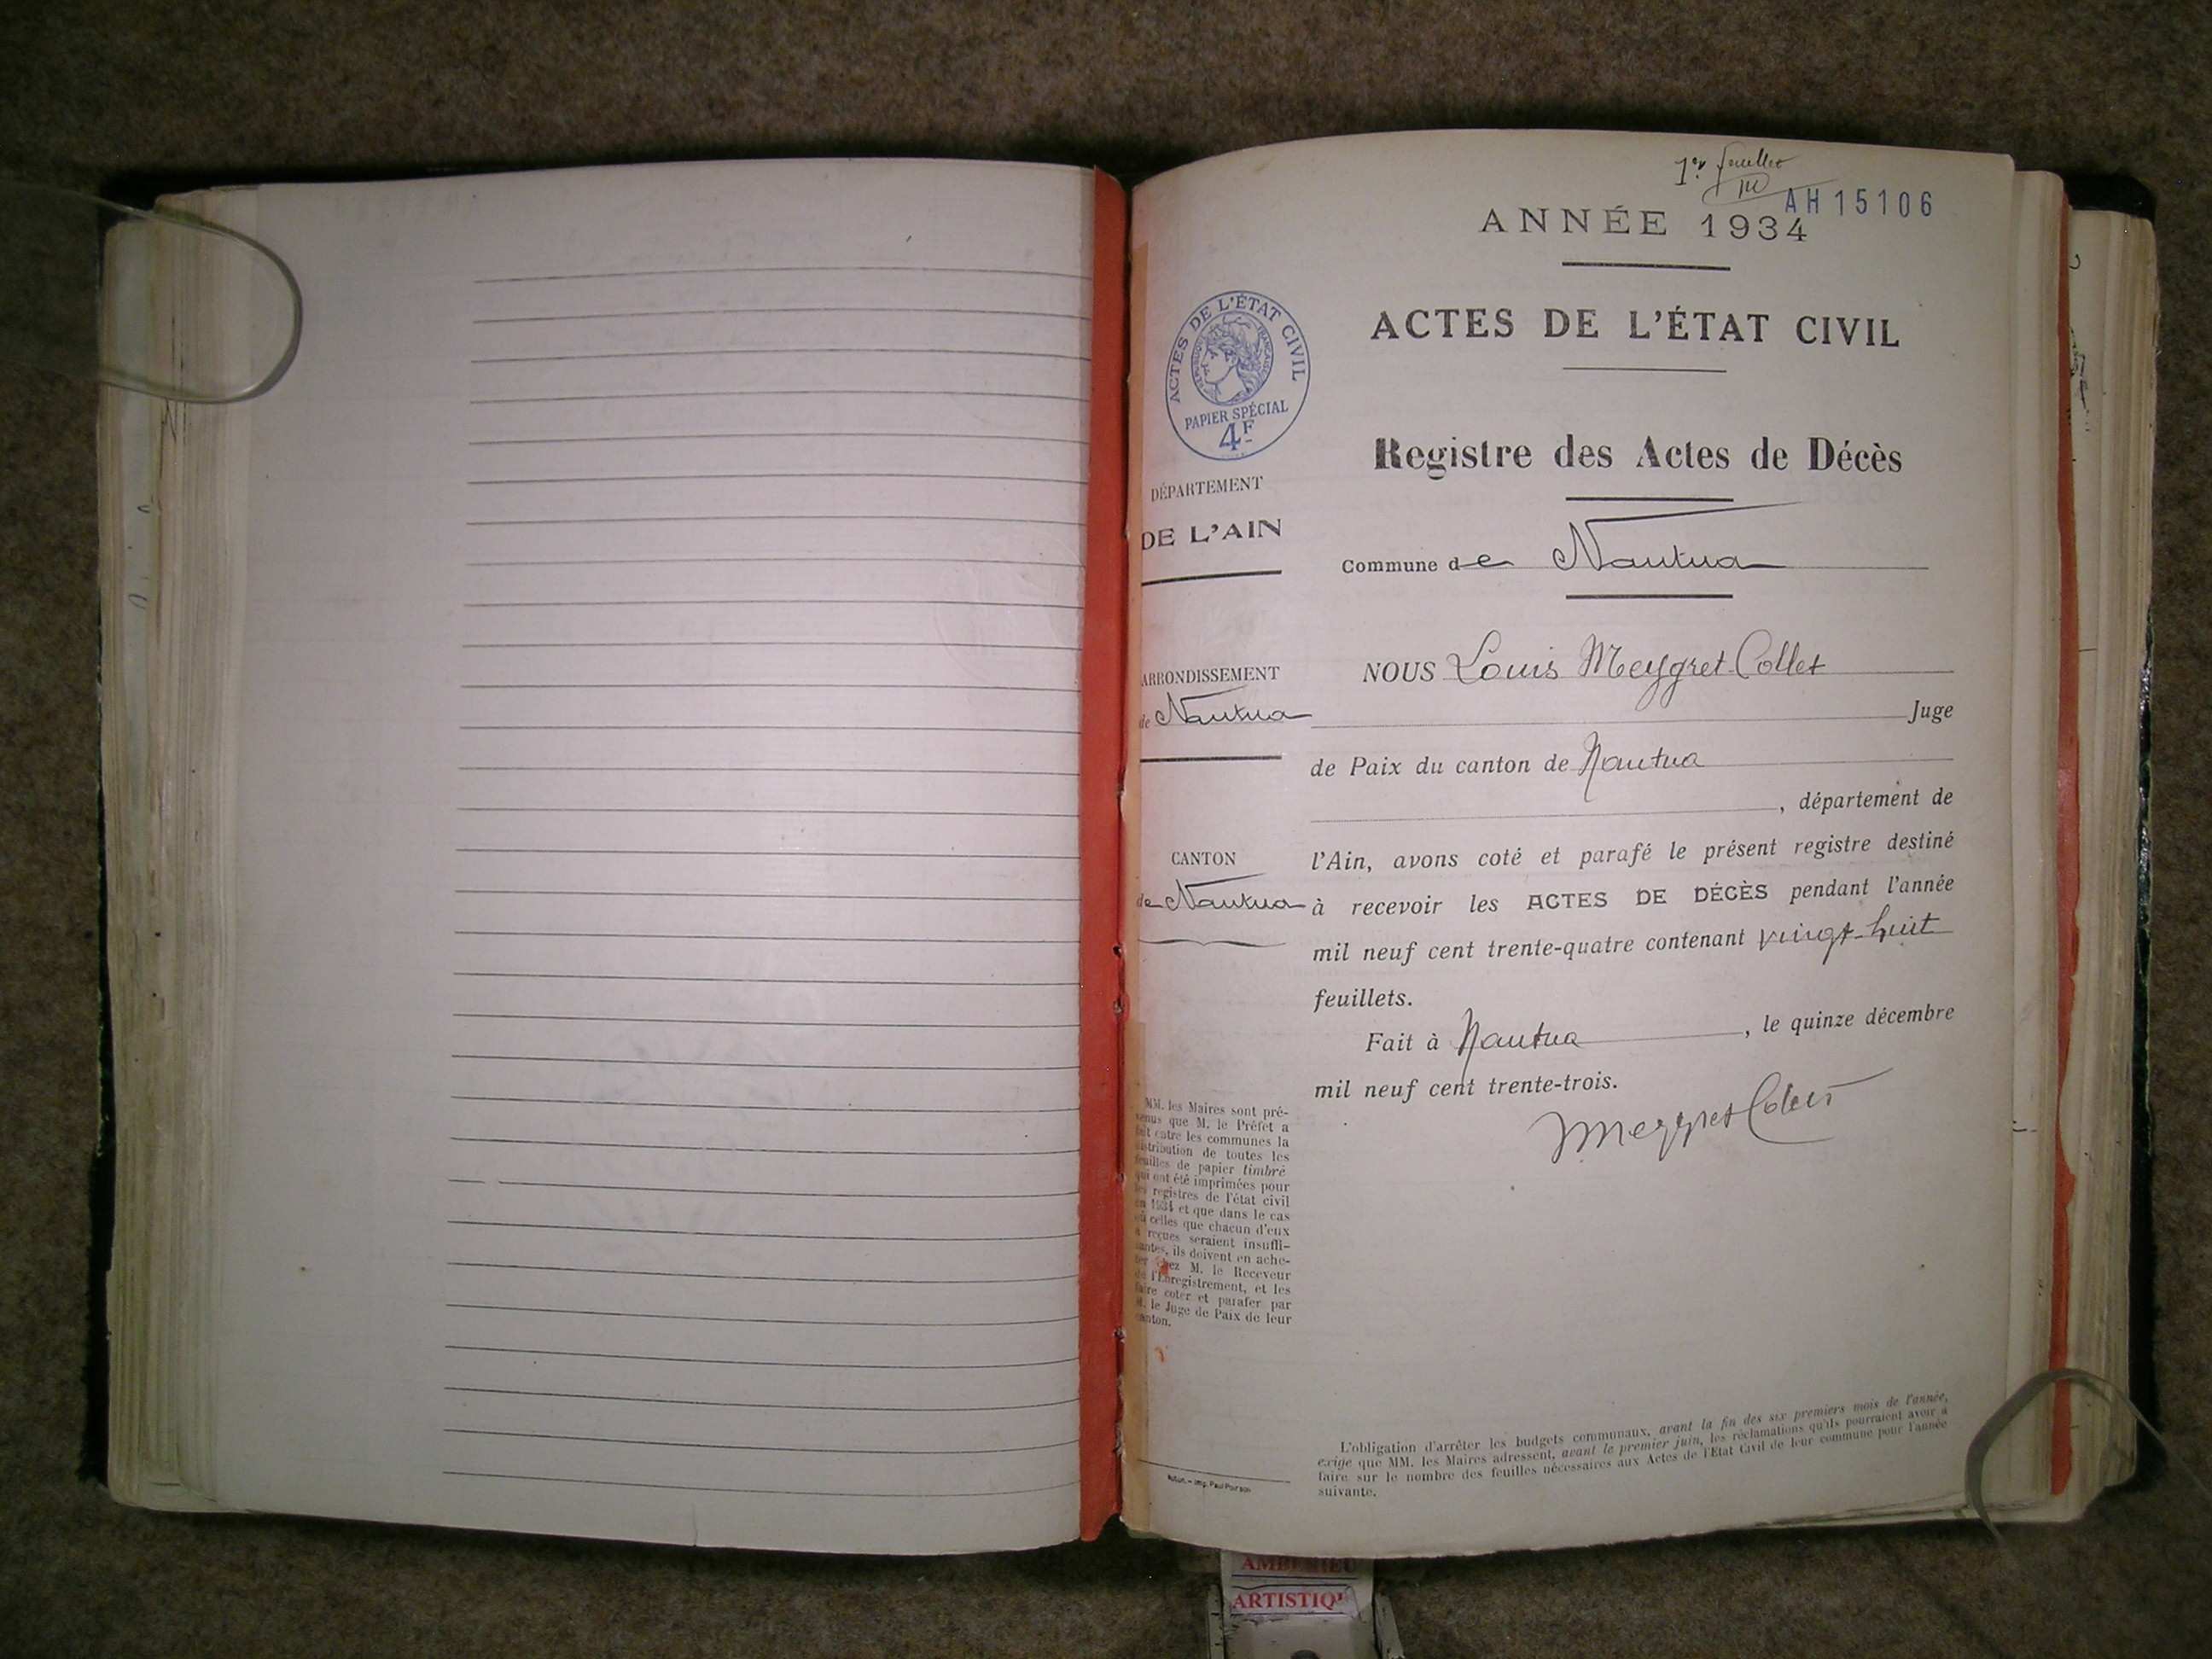 1er feuillet
AH 15106
ANNÉE 1934
ACTES DE L'ÉTAT CIVIL
RÉPUBLIQUE FRANÇAISE
PAPIER SPÉCIAL
4F
ACTES DE L'ÉTAT CIVIL
Registre des Actes de Décès
DÉPARTEMENT
DE L'AIN
Commune de Nantua
ARRONDISSEMENT
de Nantua
CANTON
de Nantua
NOUS Louis Meygret-Collet
Juge
de Paix du canton de Nantua
, département de
l'Ain, avons coté et parafé le présent registre destiné
à recevoir les ACTES DE DÉCÈS pendant l'année
mil neuf cent trente-quatre contenant vingt-huit
feuillets.
Fait à Nantua, le quinze décembre
mil neuf cent trente-trois.
Meygret Collet
MM. les Maires sont pré-
venus que M. le Préfet a
fait entre les communes la
distribution de toutes les
feuilles de papier timbré
qui ont été imprimées pour
les registres de l'état civil
en 1934 et que dans le cas
où celles que chacun d'eux
a reçues seraient insuffi-
santes, ils doivent en ache-
ter chez M. le Receveur
de l'Enregistrement, et les
faire coter et parafer par
M. le Juge de Paix de leur
canton.
L'obligation d'arrêter les budgets communaux, avant la fin des six premiers mois de l'année,
exige que MM. les Maires adressent, avant le premier juin, les réclamations qu'ils pourraient avoir à
faire sur le nombre des feuilles nécessaires aux Actes de l'Etat Civil de leur commune pour l'année
suivante.
Imp. Paul Poirson
ARTISTIQU